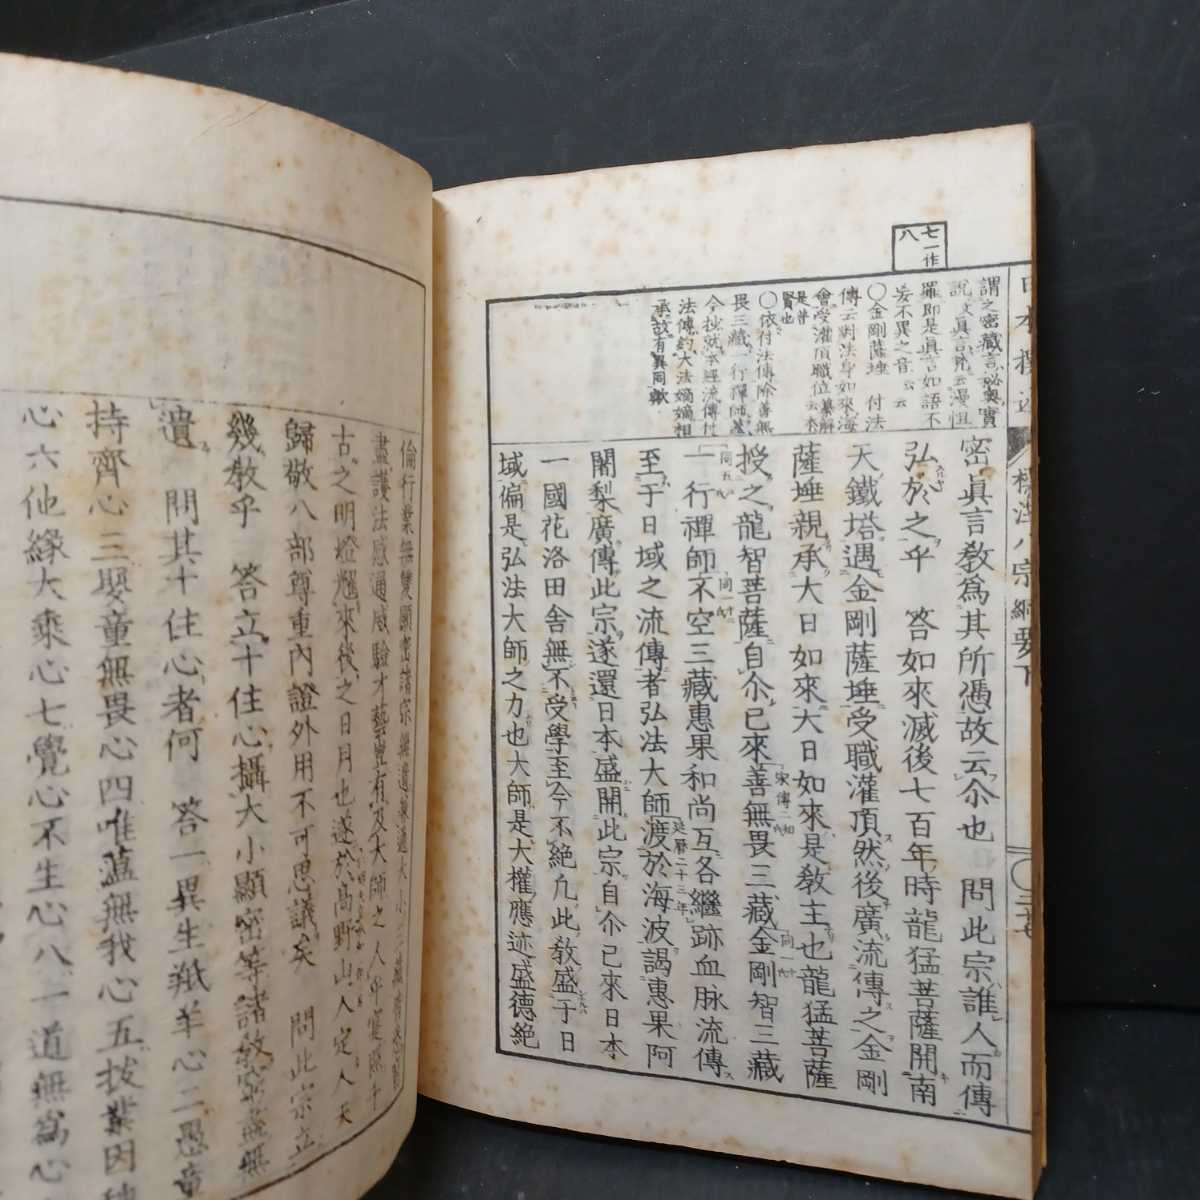 七一作
八
謂之密藏言祕奧實
羅即是眞言如語不
妄不異之音云云
〇金剛薩埵 付法
傳云對法身如來海
會受灌頂職位云云
賢也
〇依付法傳除善無
畏三藏一行禪師
今抄就本經流傳付
法傳約大法嫡嫡相
承故有異同歟
密眞言教爲其所憑故云尒也 問此宗誰人而傳
弘於之乎 答如來滅後七百年時龍猛菩薩開南
天鐵塔遇金剛薩埵受職灌頂然後廣流傳之金剛
薩埵親承大日如來大日如來是教主也龍猛菩薩
授之龍智菩薩自尒已來善無畏三藏金剛智三藏
一行禪師不空三藏惠果和尚互各繼跡血脉流傳
至于日域之流傳者弘法大師渡於海波謁惠果阿
闍梨廣傳此宗遂還日本盛開此宗自尒已來日本
一國花洛田舍無不受學至今不絶凡此教盛于日
域偏是弘法大師之力也大師是大權應迹盛德絶
倫行業無雙顯密諸宗
盡護法感通威驗才藝
古之明燈耀來後之日月也遂於高野山入定人天
歸敬八部尊重內證外用不可思議矣 問此宗立
幾教乎 答立十住心攝大小顯密等諸教窮盡無
遺 問其十住心者何 答一異生羝羊心二愚童
持齊心三嬰童無畏心四唯蘊無我心五拔業因種
心六他緣大乘心七覺心不生心八一道無爲心